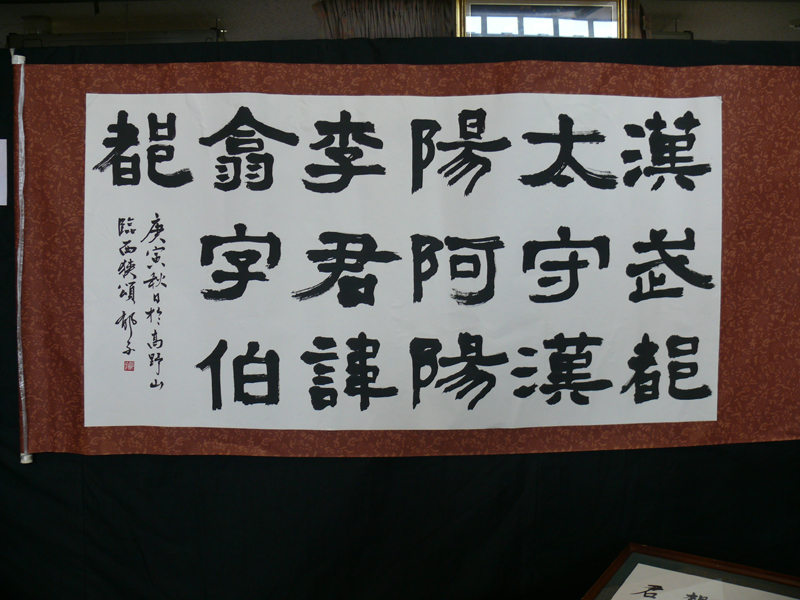 漢武都
太守漢
陽阿陽
李君諱
翕字伯
都
庚寅秋日於高野山
臨西狭頌 郁子